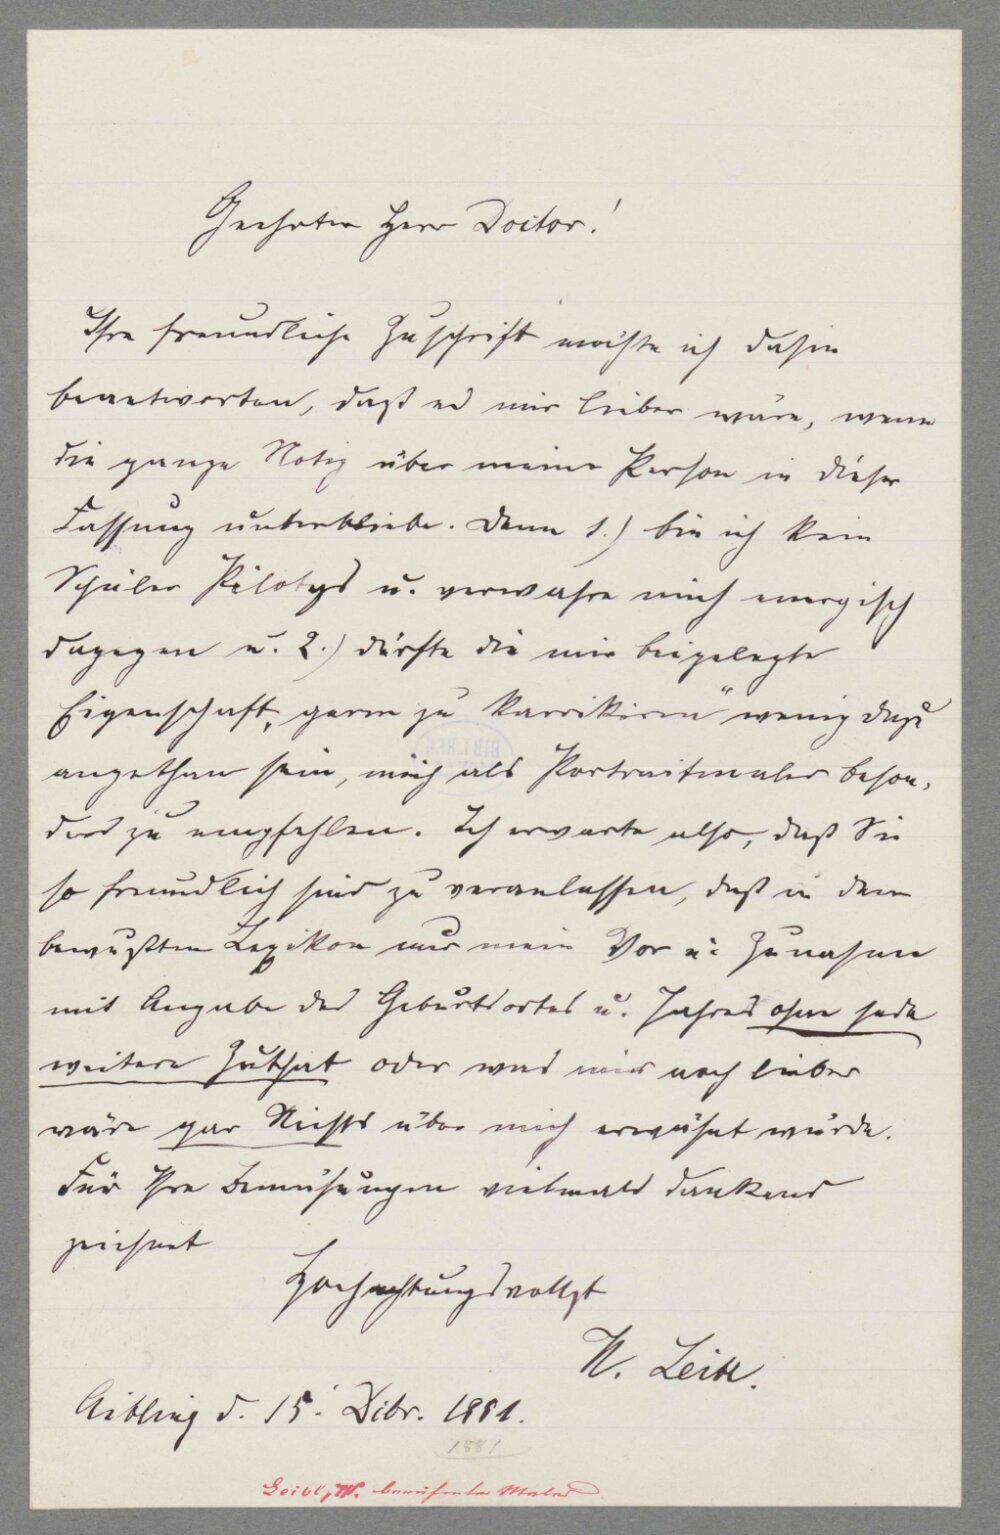 Geehrter Herr Doctor!
Ihre freundliche Zuschrift möchte ich dahin
beantworten, daß es mir lieber wäre, wenn
die ganze Notiz über meine Person in dieser
Fassung unterbliebe. Denn 1.) bin ich kein
Schüler Pilotys u. verwahre mich energisch
dagegen u. 2.) dürfte die mir beigelegte
Eigenschaft „gerne zu karrikiren“ wenig dazu
angethan sein, mich als Portraitmaler beson-
ders zu empfehlen. Ich erwarte also, daß Sie
so freundlich sind zu veranlassen, daß in dem
bewußten Lexikon nur mein Vor u. Zunahme
mit Angabe des Geburtsortes u. Jahres ohne jede
weitere Zuthat oder was mir noch lieber
wäre gar Nichts über mich erwähnt würde.
Für Ihre Bemühungen vielmals dankend
zeichnet
Hochachtungsvollst
W. Leibl.
Aibling d. 15. Dcbr. 1881.
1881
Leibl, W. berühmter Maler